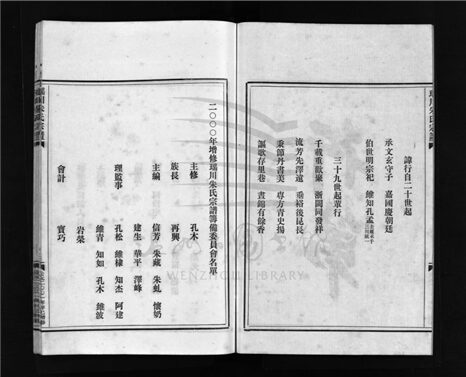 瑞川朱氏宗譜
諱行自二十世起
承文玄守子　嘉國慶朝廷
伯世明宗祀　維知孔孟
三十九世起輩行
千載重歡聚　浙閩同發祥
流芳先澤遠　垂裕後昆長
秉節丹書美　専方青史揚
謳歌存里巷　晝錦有餘香
二〇〇〇年增修瑞川朱氏宗譜籌備委員會名單
主修　孔木
族長　再興
主編　信芳　朱藏　朱虬　懷奶
建生　華平　澤峰
理監事　孔松　維棣　知杰　阿建
維青　知如　孔木　維波
岩榮
會計　寶巧
瑞川朱氏宗譜
WENZHOU LIBRARY